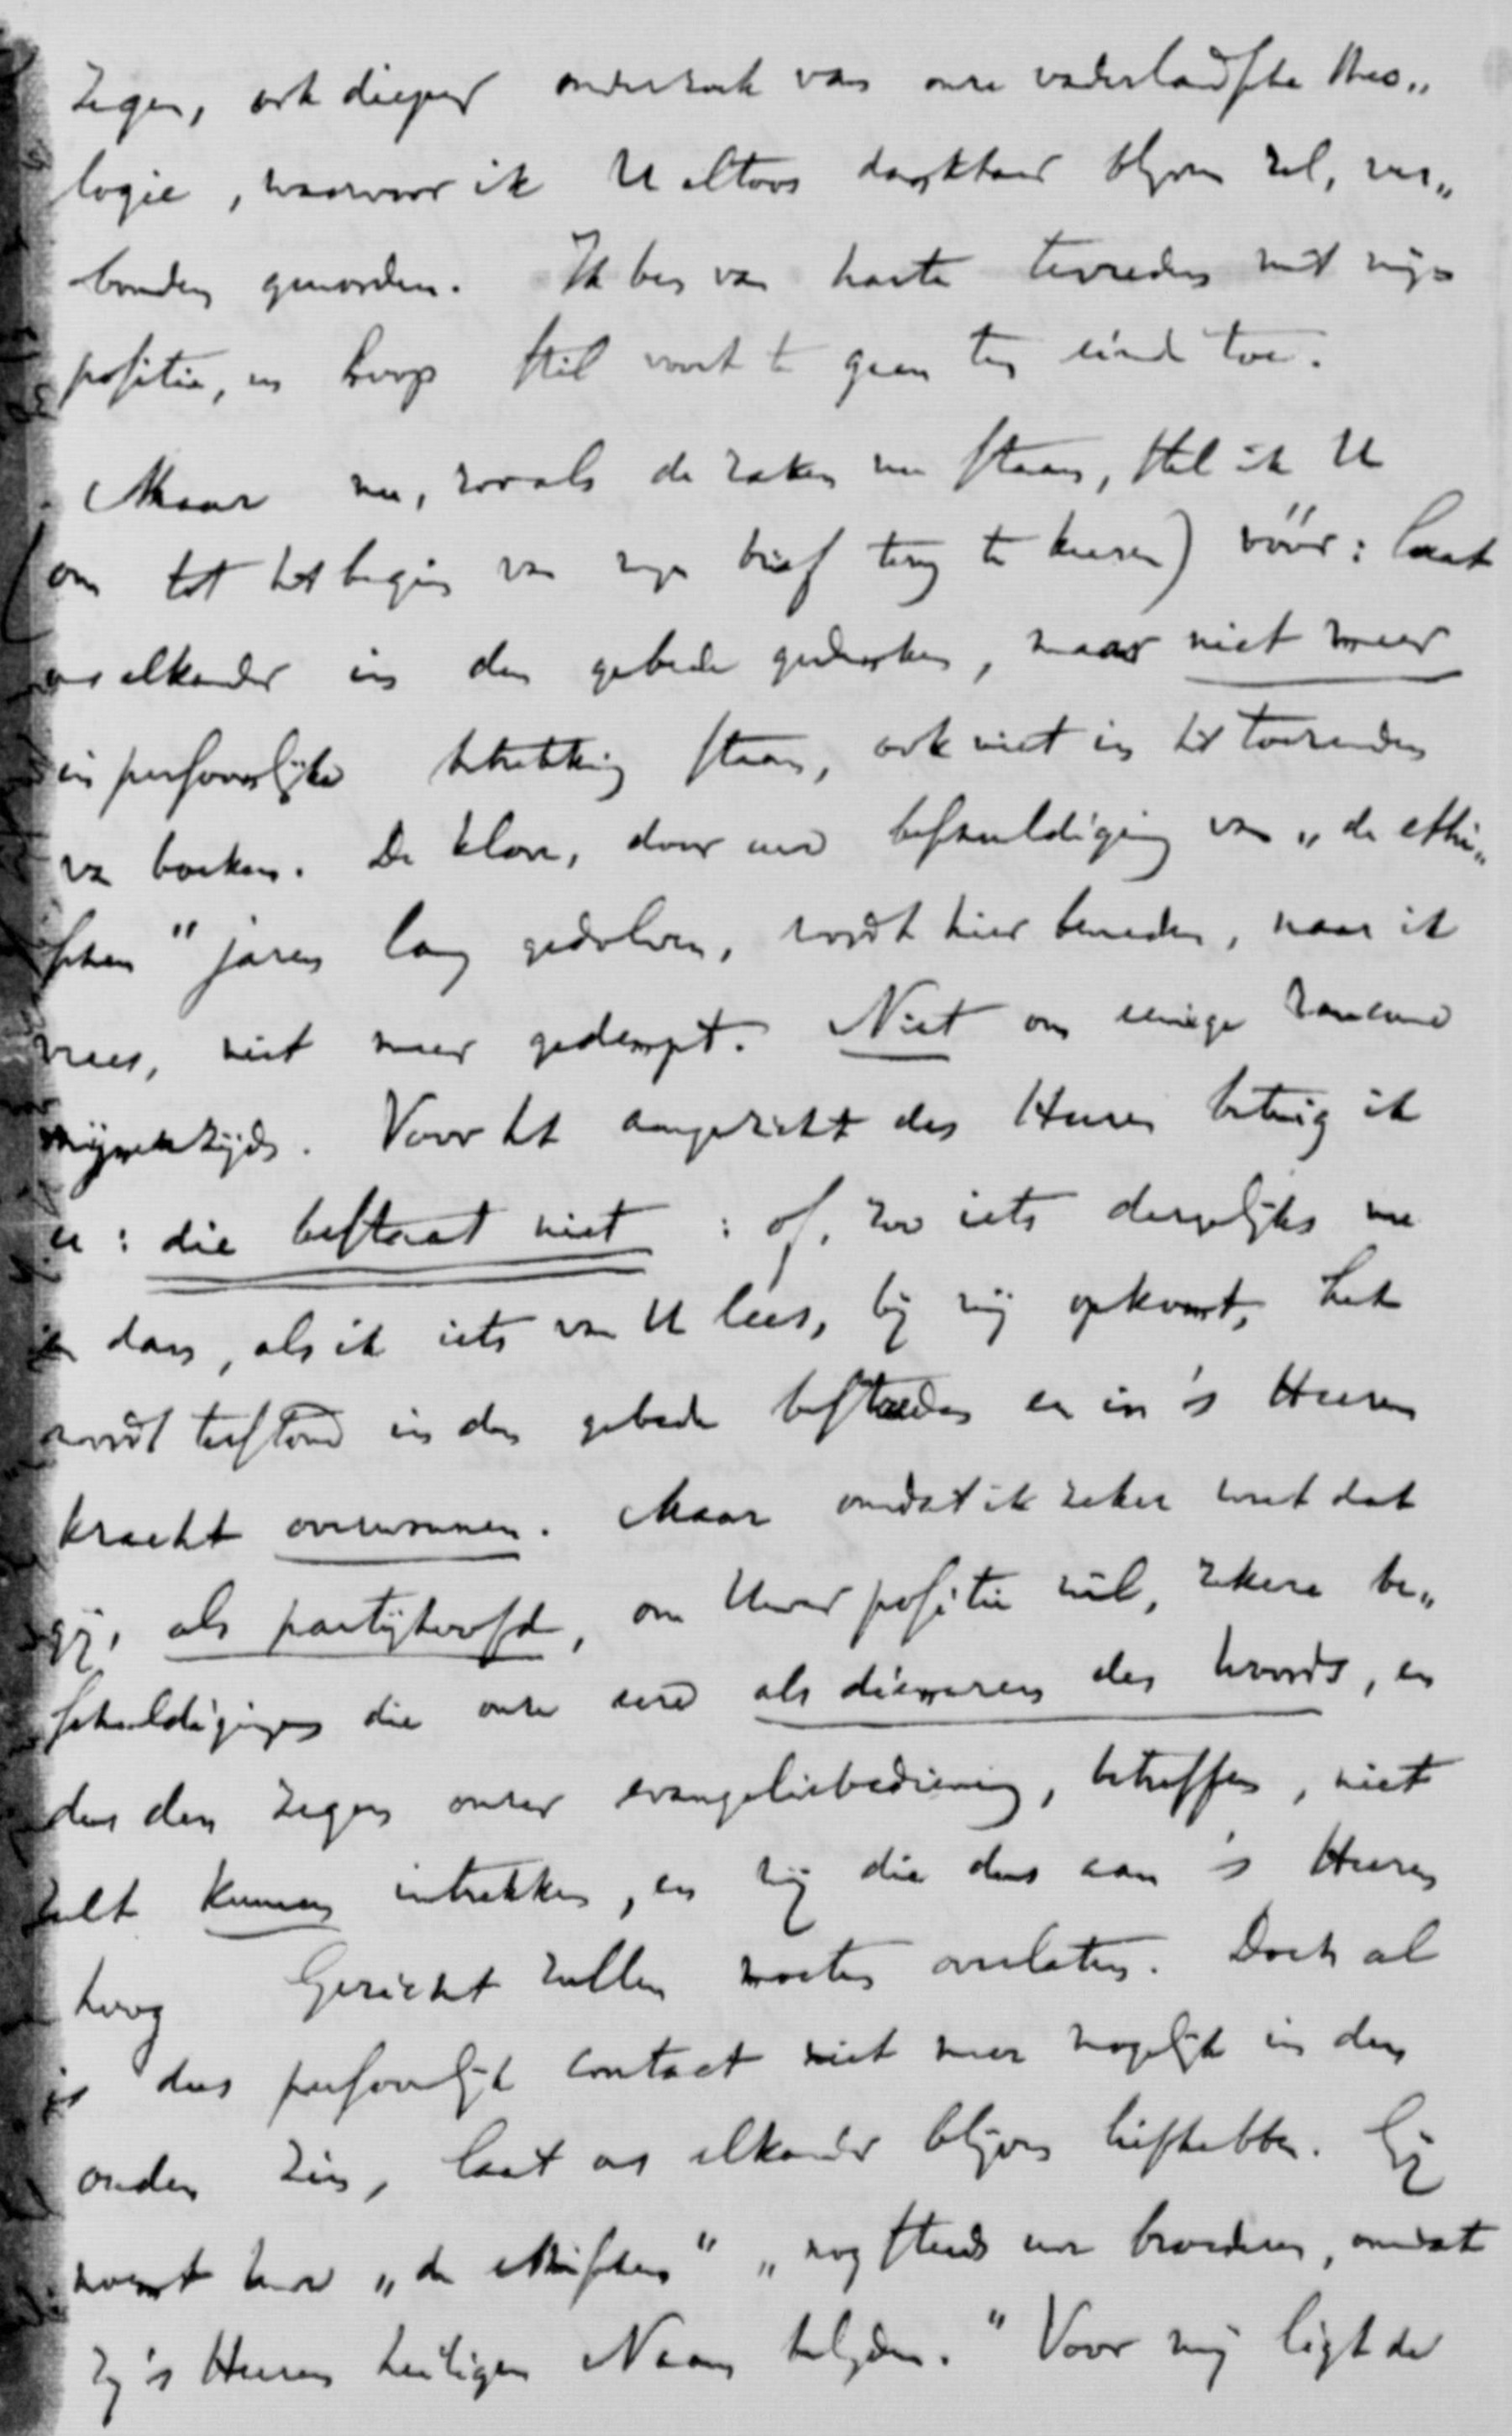 zegen, ook dieper onderzoek van onze vaderlandsche theo„
logie, waarvoor ik U altoos dankbaar blijven zal, ver„
bonden geworden. Ik ben van harte tevreden met mijn
positie, en hoop stil voort te gaan ten einde toe.
Maar nu, zooals de zaken nu staan, stel ik U
(om tot het begin van mijn brief terug te keeren) vóór: laat
ons elkander in den gebede gedenken, maar niet meer
in persoonlijke betrekking staan, ook niet in het toezenden
van boeken. De klove, door uw beschuldiging van „de ethi„
schen" jaren lang gedolven, wordt hier beneden, naar ik
vrees, niet meer gedempt. Niet om eenige rancune
mijnerzijds. Voor het aangezicht des Heeren betuig ik
u: die bestaat niet: of, zoo iets dergelijks nu
en dan, als ik iets van U lees, bij mij opkomt, het
wordt terstond in den gebede bestreden en in 's Heeren
kracht overwonnen. Maar omdat ik zeker weet dat
gij, als partijhoofd, om Uwer positie wil, zekere be„
schuldigingen die onze eere als dienaren des Woords, en
dus den zegen onzer evangeliebediening, betreffen, niet
zult kunnen intrekken, en wij die dus aan 's Heeren
hoog Gericht zullen moeten overlaten. Doch al
is dus persoonlijk contact niet meer mogelijk in den
ouden zin, laat ons elkander blijven liefhebben. Gij
noemt hen „de ethischen" „nog steeds uw broederen, omdat
zij 's Heeren heiligen Naam belijden." Voor mij ligt de